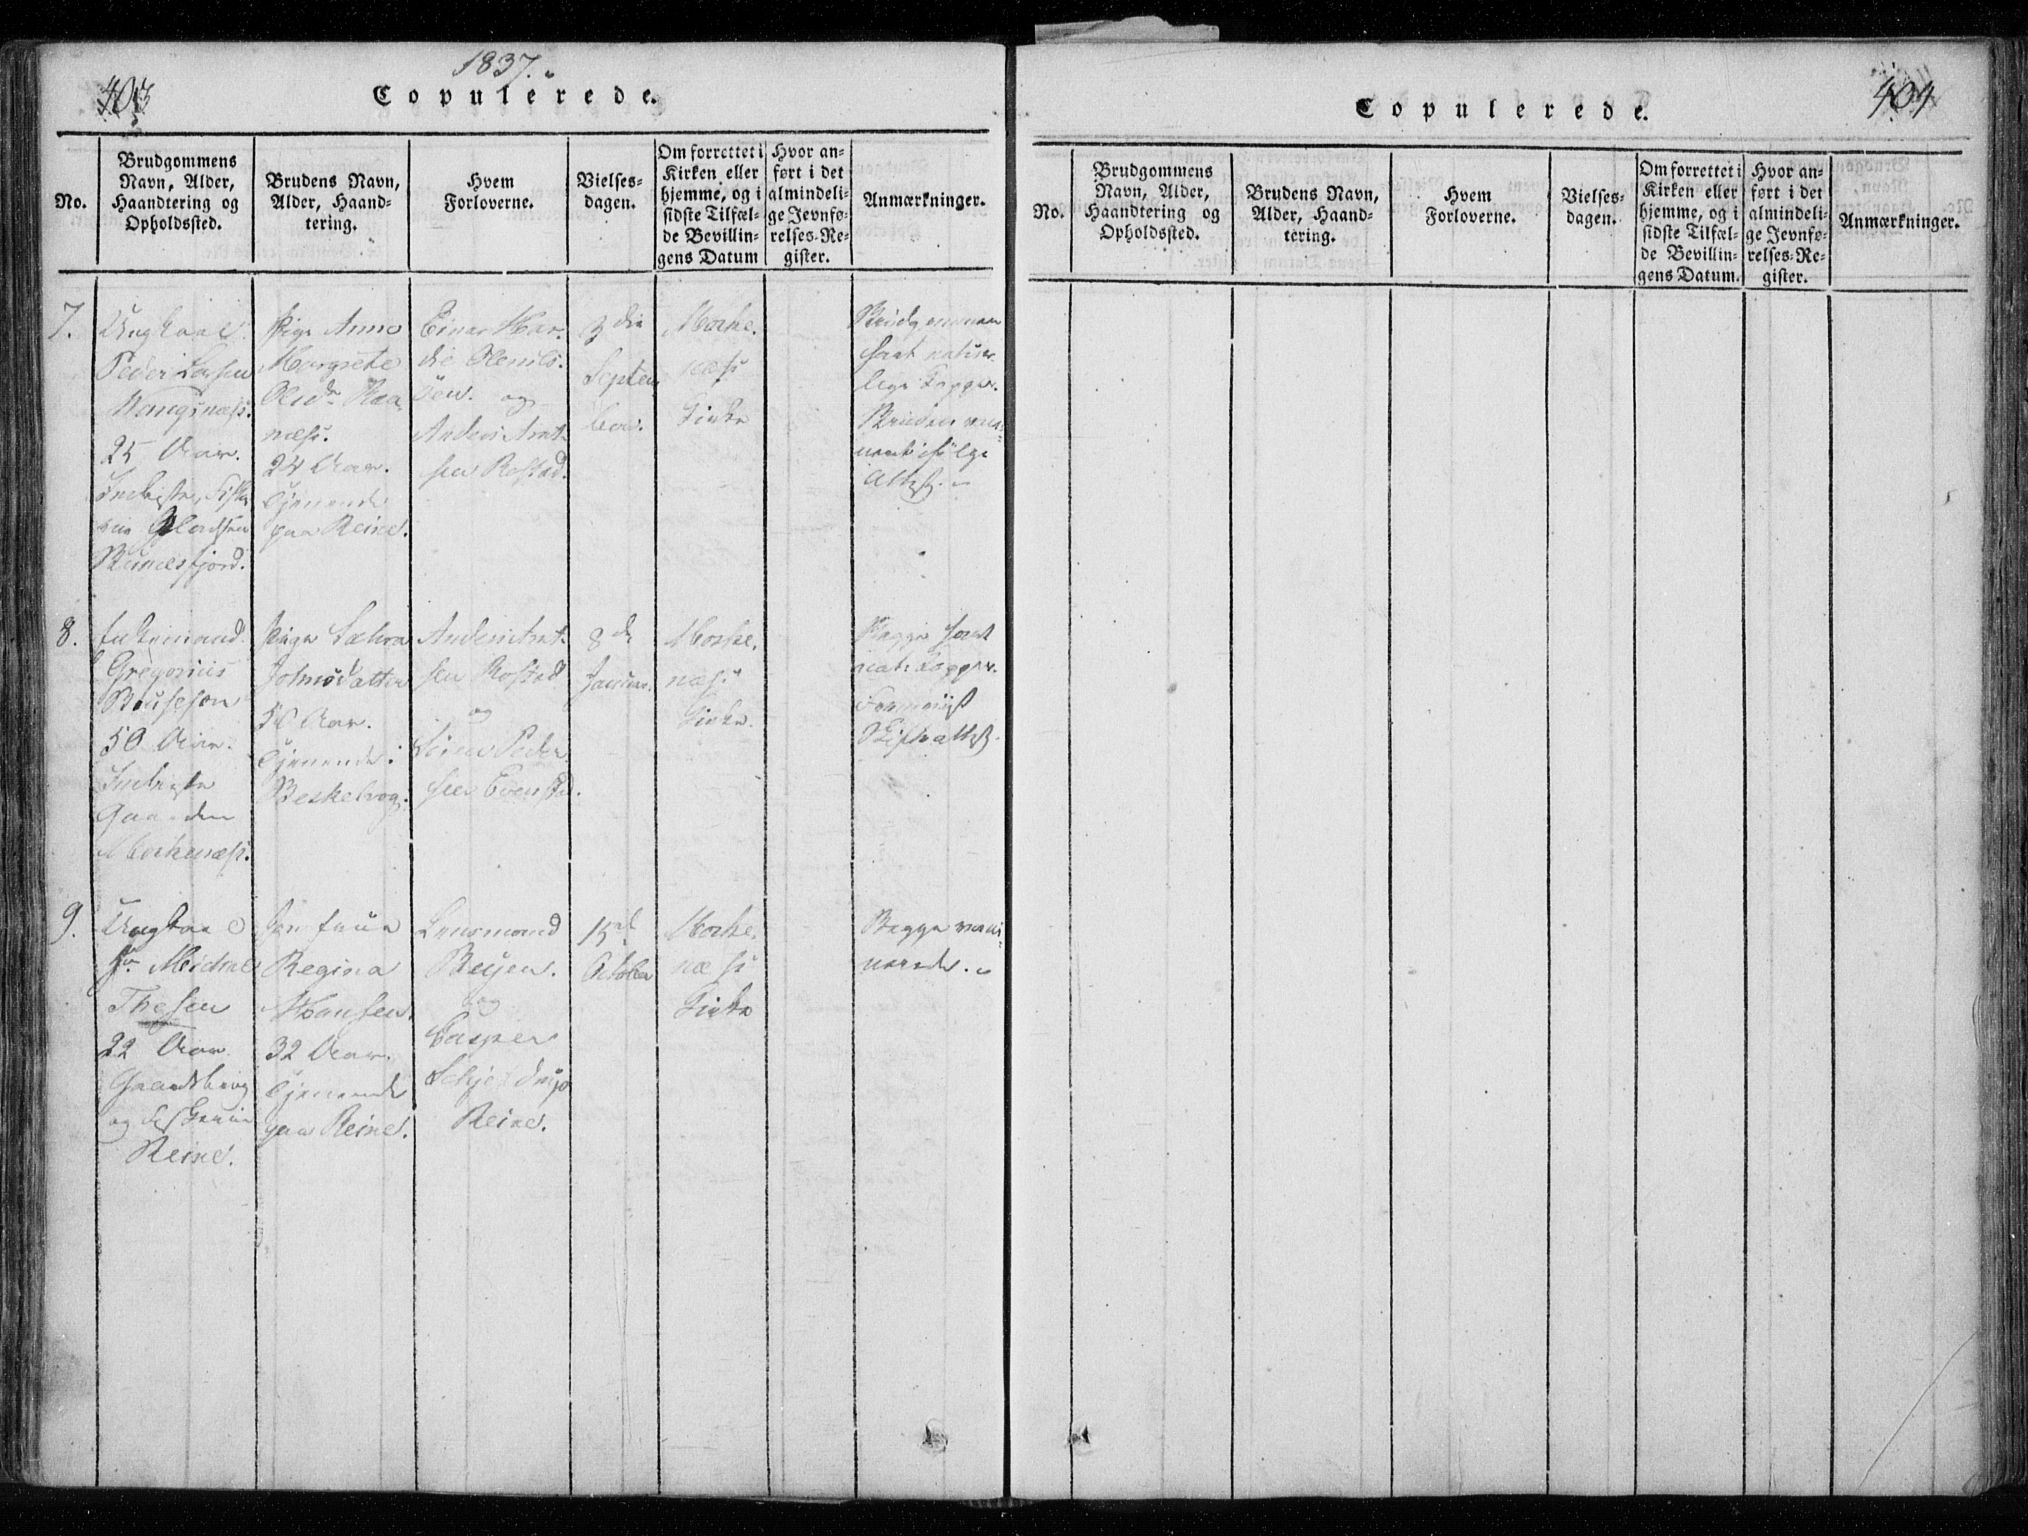 403
1837.
Copulerede.
No.
Brudgommens
Navn, Alder,
Haandtering og
Opholdssted.
Brudens Navn,
Alder, Haand-
tering.
Hvem
Forloverne.
Vielses-
dagen.
Om forrettet i
Kirken eller
hjemme, og i
sidste Tilfæl-
de Bevillin-
gens Datum
Hvor an-
ført i det
almindeli-
ge Jevnfø-
relses-Re-
gister.
Anmærkninger.
7.
Ungkarl
Peder
25 Aar.
Inderste,
Reinesfjord.
Pige Anne
Margrete
Olsdr.
næss.
24 Aar.
Tjenende
paa Reine.
Einar Har-
og
Anders Arnt-
sen Rostad.
3die
Septem
ber.
Moske-
næss
Kirke
Brudgommen
havt natur-
lige Kopper.
Bruden vaci-
neret ifølge
Attest.
8.
Enkemand
Gregorius
50 Aar.
Inderste
Gaarden
Moskenæss.
Pige
Johnsdatter
50 Aar.
Tjenende i
Anders Arnt-
sen Rostad
og
Sören Peder
sen
8de
Moske-
næss
Kirke.
Begge havt
nat: Kopper.
Skifteattest.
9.
Ungkarl
Hr. Michael
Thesen
22 Aar
og
Reine.
Jomfrue
Regina
Hansen.
32 Aar.
Tjenende
paa Reine.
Lensmand
og
Casper
Reine.
15de
October
Moske-
næss
Kirke
Begge vacci-
nerede.
404
Copulerede.
No.
Brudgommens
Navn, Alder,
Haandtering og
Opholdssted.
Brudens Navn,
Alder, Haand-
tering.
Hvem
Forloverne.
Vielses-
dagen.
Om forrettet i
Kirken eller
hjemme, og i
sidste Tilfæl-
de Bevillin-
gens Datum.
Hvor an-
ført i det
almindeli-
ge Jevnfø-
relses-Re-
gister.
Anmærkninger.